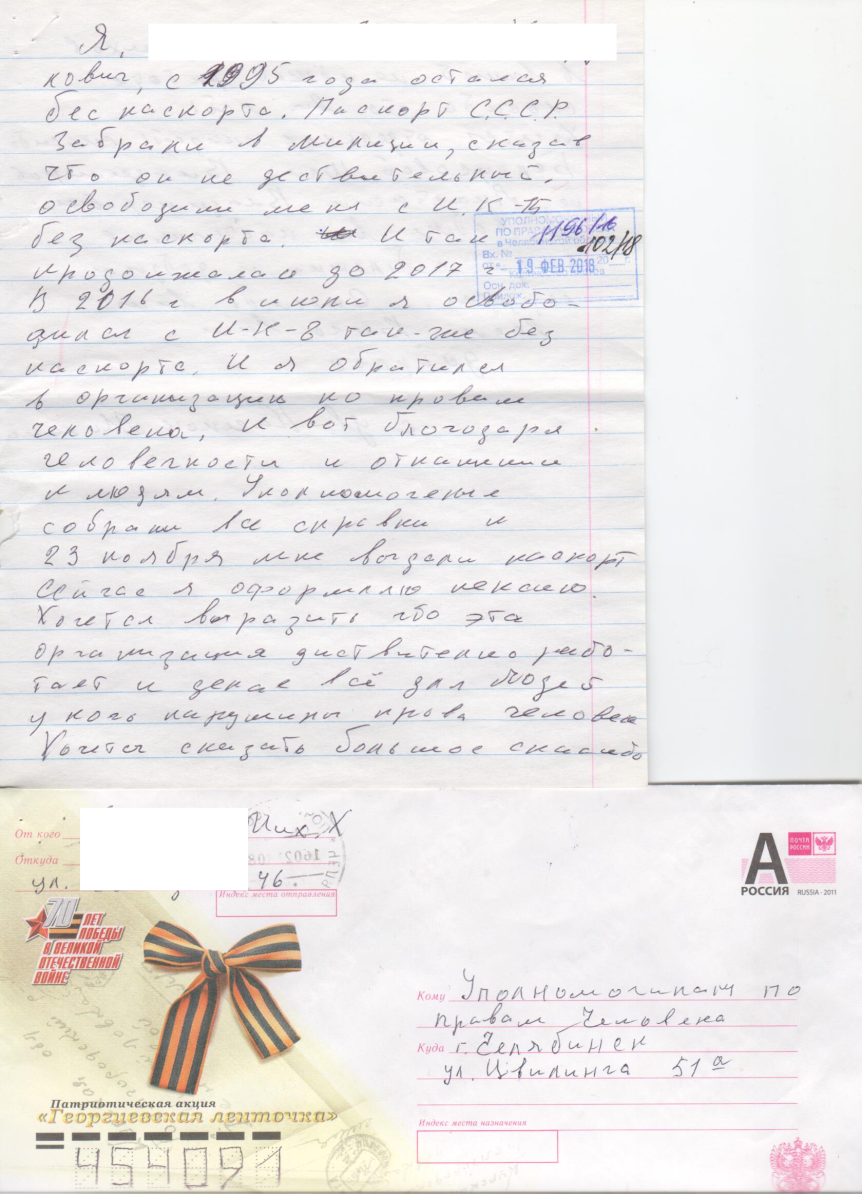 Я,
кович, с 1995 года остался
бес паспорта. Паспорт С.С.С.Р.
Забрали в милиции, сказав
что он не дествительный.
освободили меня с И.К-
без паспорта. И так
продолжалась до 2017 г
В 2016 г в июни я освобо-
дился с И-К-8 так-же без
паспорта. И я обратился
в организацию по правам
человека, И вот благодаря
человечности и отнашнии
к людям. Уполномоченые
собрали все справки и
23 ноября мне выдали паспорт
сейчас я оформляю пенсию.
Хочется выразить что эта
организация диствително рабо-
тает и делае всё для людей
у кого нарушины права человека
Хочется сказать большое спасибо
УПОЛНОМО
ПО ПРА
в Челябинской об
Вх. № 1196/16
102/18
19 ФЕВ. 2018
Осн. док.
От кого Мих. Х
Откуда
ул. 46.
Индекс места отправления
70 ЛЕТ
ПОБЕДЫ
В ВЕЛИКОЙ
ОТЕЧЕСТВЕННОЙ
ВОЙНЕ
ПОЧТА
РОССИИ
А
РОССИЯ RUSSIA - 2011
Кому Уполномочинам по
правам Человека
Куда г. Челябинск
ул. Цвилинга 51а
Индекс места назначения
Патриотическая акция
«Георгиевская ленточка»
454091